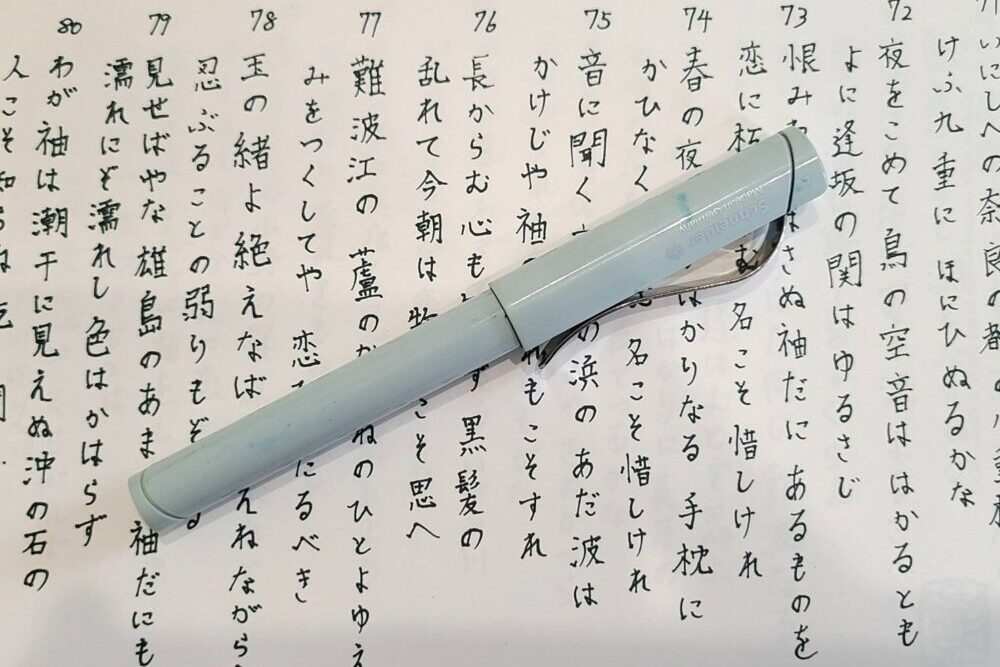 いにしへの奈良の都
けふ九重に ほにひぬるかな
72
夜をこめて 鳥の空音は はかるとも
よに逢坂の 関はゆるさじ
73
恨み はさぬ袖だに あるものを
恋に朽 む 名こそ惜しけれ
74
春の夜 ばかりなる 手枕に
かひなく 名こそ惜しけれ
75
音に聞く の浜の あだ波は
かけじや袖 れもこそすれ
76
長からむ 心も ず 黒髪の
乱れて今朝は 物 こそ思へ
77
難波江の 蘆のか ねのひとよゆえ
みをつくしてや 恋 にるべき
78
玉の緒よ 絶えなば えねながら
忍ぶることの 弱りもぞ
79
見せばやな 雄島のあま 袖だにも
濡れにぞ濡れし 色はかはらず
80
わが袖は 潮干に見えぬ 沖の石の
人こそ知らね
Schneider
Made in Germany